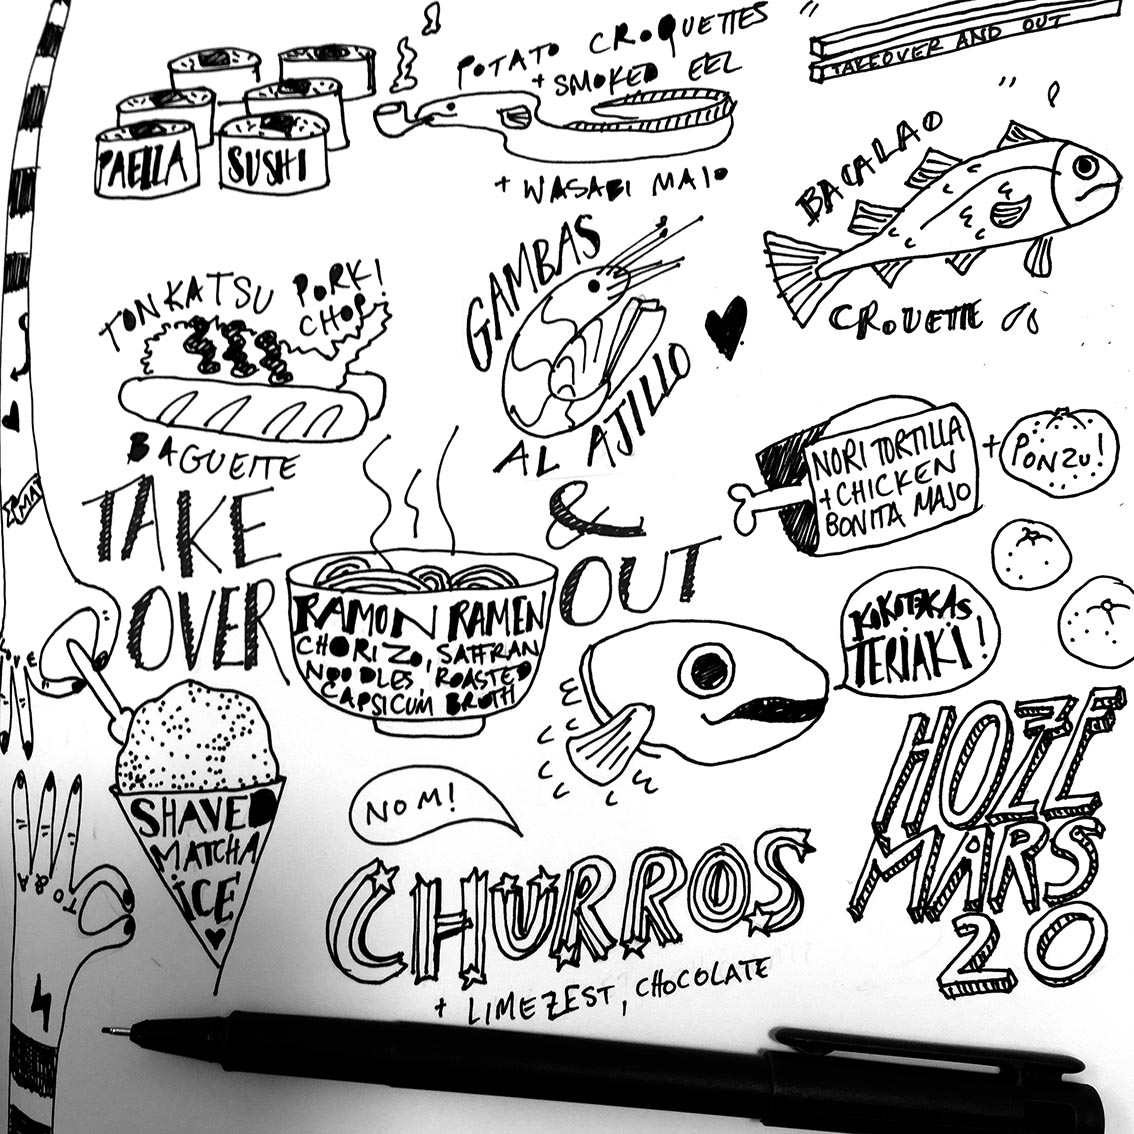 POTATO CROQUETTES
+ SMOKED EEL
+ WASABI MAIO
TAKEOVER AND OUT
PAELLA
SUSHI
BACALAO
CROUETTE
TONKATSU PORK!
CHOP!
BAGUETTE
GAMBAS
AL AJILLO
NORI TORTILLA
+ CHICKEN
BONITA MAJO
+ PONZU!
TAKE
OVER
& 
OUT
RAMON RAMEN
CHORIZO, SAFFRAN
NOODLES, ROASTED
CAPSICUM BROTH
KOKOTXAS
TERIAKI!
SHAVED
MATCHA
ICE
NOM!
CHURROS
+ LIMEZEST, CHOCOLATE
HOZE
MARS
20